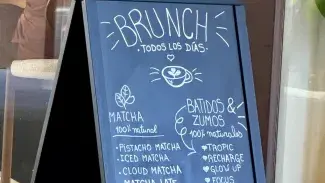 BRUNCH
TODOS LOS DÍAS
MATCHA
100% natural
• PISTACHO MATCHA
• ICED MATCHA
• CLOUD MATCHA
• MATCHA LATE
BATIDOS &
ZUMOS
100% naturales
♥ TROPIC
♥ RECHARGE
♥ GLOW UP
♥ FOCUS